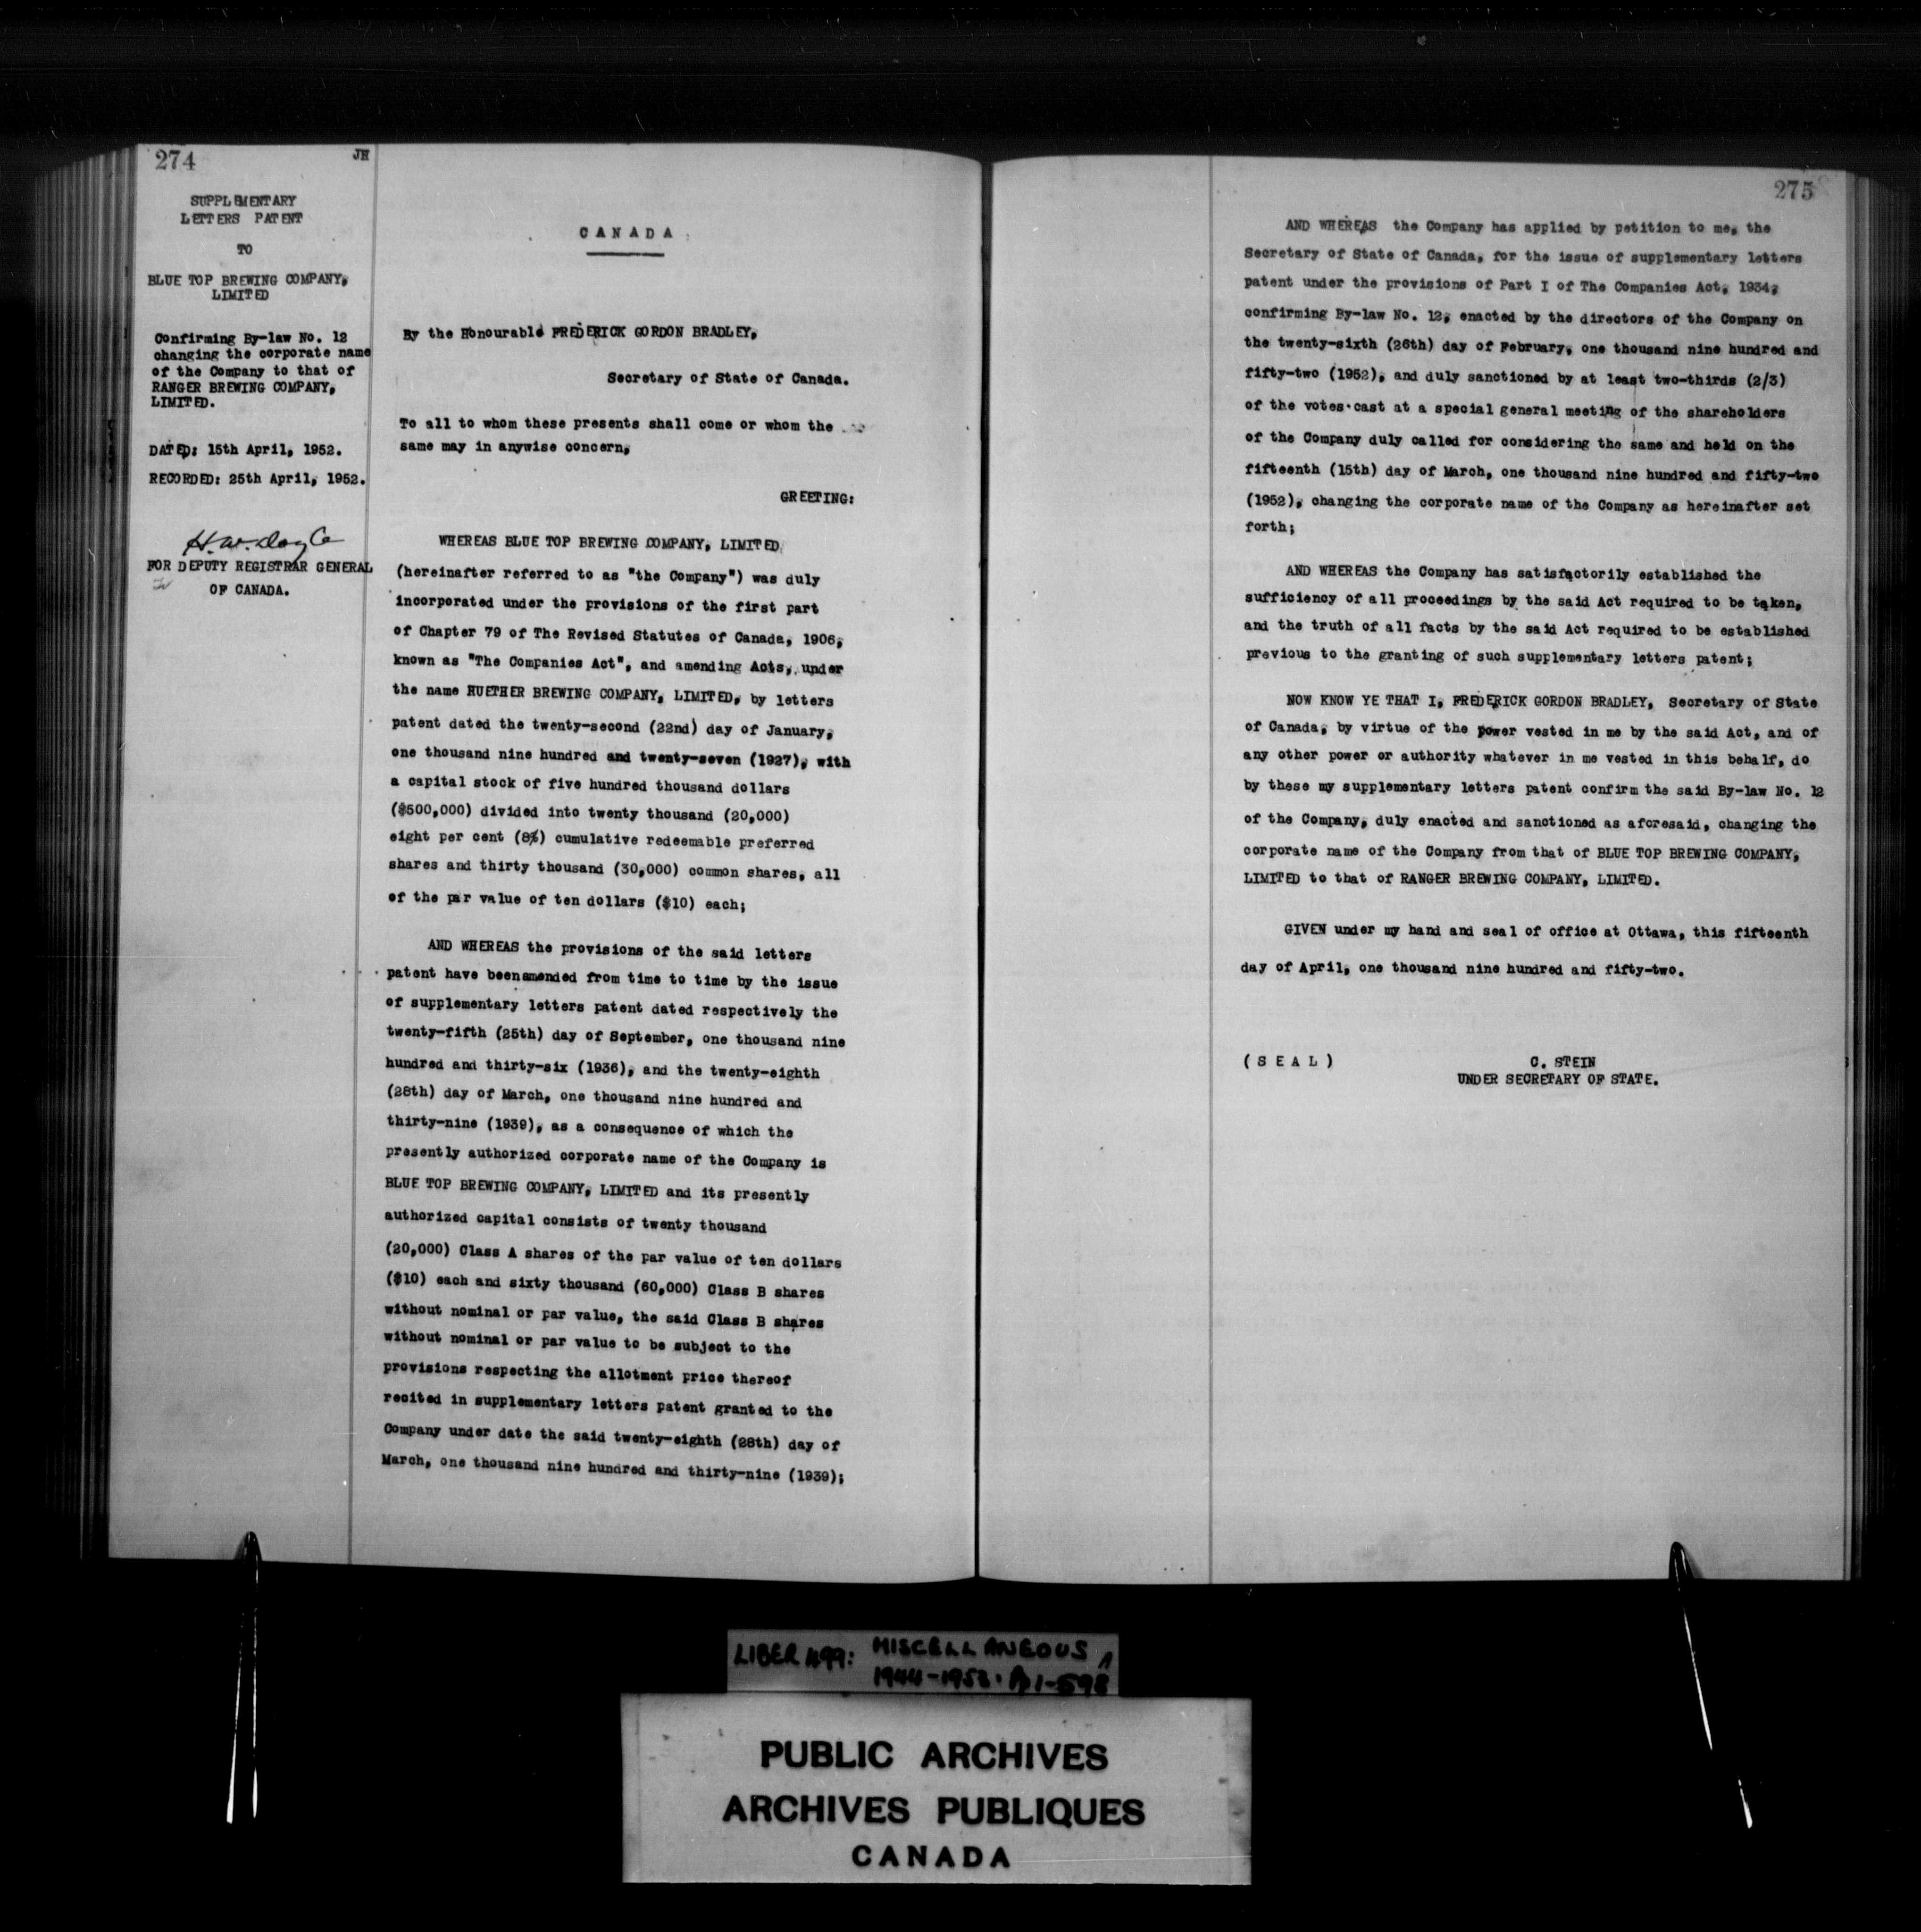 274
JH
SUPPLEMENTARY
LETTERS PATENT
TO
BLUE TOP BREWING COMPANY,
LIMITED
Confirming By-law No. 12
changing the corporate name
of the Company to that of
RANGER BREWING COMPANY,
LIMITED.
DATED: 15th April, 1952.
RECORDED: 25th April, 1952.
H.W. Doyle
FOR DEPUTY REGISTRAR GENERAL
OF CANADA.
CANADA
By the Honourable FREDERICK GORDON BRADLEY,
Secretary of State of Canada.
To all to whom these presents shall come or whom the
same may in anywise concern,
GREETING:
WHEREAS BLUE TOP BREWING COMPANY, LIMITED
(hereinafter referred to as "the Company") was duly
incorporated under the provisions of the first part
of Chapter 79 of The Revised Statutes of Canada, 1906,
known as "The Companies Act", and amending Acts, under
the name HUETHER BREWING COMPANY, LIMITED, by letters
patent dated the twenty-second (22nd) day of January,
one thousand nine hundred and twenty-seven (1927), with
a capital stock of five hundred thousand dollars
($500,000) divided into twenty thousand (20,000)
eight per cent (8%) cumulative redeemable preferred
shares and thirty thousand (30,000) common shares, all
of the par value of ten dollars ($10) each;
AND WHEREAS the provisions of the said letters
patent have beenamended from time to time by the issue
of supplementary letters patent dated respectively the
twenty-fifth (25th) day of September, one thousand nine
hundred and thirty-six (1936), and the twenty-eighth
(28th) day of March, one thousand nine hundred and
thirty-nine (1939), as a consequence of which the
presently authorized corporate name of the Company is
BLUE TOP BREWING COMPANY, LIMITED and its presently
authorized capital consists of twenty thousand
(20,000) Class A shares of the par value of ten dollars
($10) each and sixty thousand (60,000) Class B shares
without nominal or par value, the said Class B shares
without nominal or par value to be subject to the
provisions respecting the allotment price thereof
recited in supplementary letters patent granted to the
Company under date the said twenty-eighth (28th) day of
March, one thousand nine hundred and thirty-nine (1939);
275
AND WHEREAS the Company has applied by petition to me, the
Secretary of State of Canada, for the issue of supplementary letters
patent under the provisions of Part I of The Companies Act, 1934,
confirming By-law No. 12, enacted by the directors of the Company on
the twenty-sixth (26th) day of February, one thousand nine hundred and
fifty-two (1952), and duly sanctioned by at least two-thirds (2/3)
of the votes cast at a special general meeting of the shareholders
of the Company duly called for considering the same and held on the
fifteenth (15th) day of March, one thousand nine hundred and fifty-two
(1952), changing the corporate name of the Company as hereinafter set
forth;
AND WHEREAS the Company has satisfactorily established the
sufficiency of all proceedings by the said Act required to be taken,
and the truth of all facts by the said Act required to be established
previous to the granting of such supplementary letters patent;
NOW KNOW YE THAT I, FREDERICK GORDON BRADLEY, Secretary of State
of Canada, by virtue of the power vested in me by the said Act, and of
any other power or authority whatever in me vested in this behalf, do
by these my supplementary letters patent confirm the said By-law No. 12
of the Company, duly enacted and sanctioned as aforesaid, changing the
corporate name of the Company from that of BLUE TOP BREWING COMPANY,
LIMITED to that of RANGER BREWING COMPANY, LIMITED.
GIVEN under my hand and seal of office at Ottawa, this fifteenth
day of April, one thousand nine hundred and fifty-two.
(SEAL)
C. STEIN
UNDER SECRETARY OF STATE.
LIBER 499: MISCELLANEOUS
1944-1953.
PUBLIC ARCHIVES
ARCHIVES PUBLIQUES
CANADA